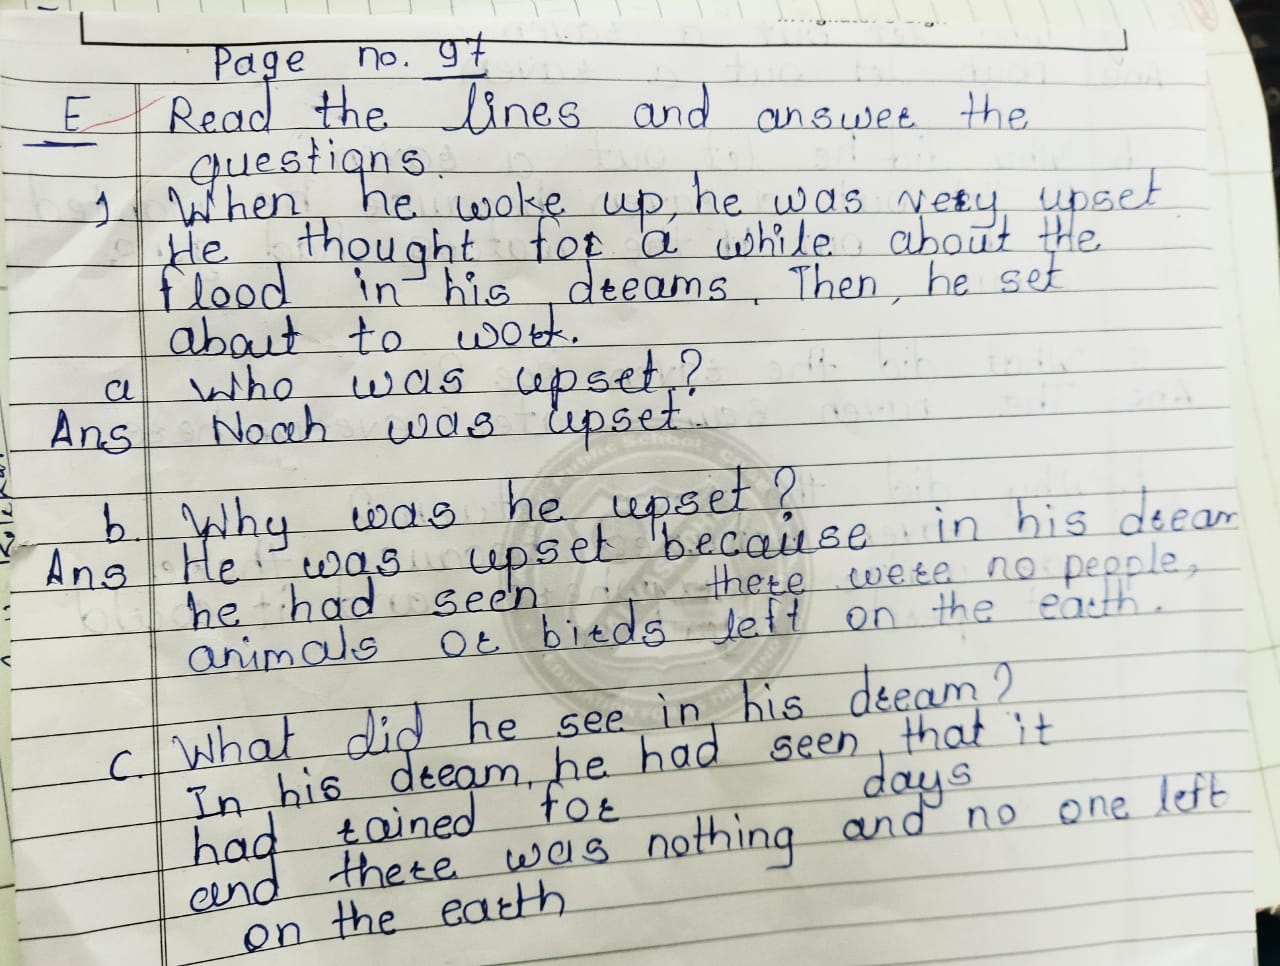 Page no. 97
E Read the lines and answer the
questions.
1. When he woke up, he was very upset
He thought for a while about the
flood in his dreams. Then, he set
about to work.
a Who was upset?
Ans Noah was upset.
b. Why was he upset?
Ans He was upset because in his dream
he had seen there were no people,
animals or birds left on the earth.
c. What did he see in his dream?
In his dream, he had seen that it
had rained for days
and there was nothing and no one left
on the earth